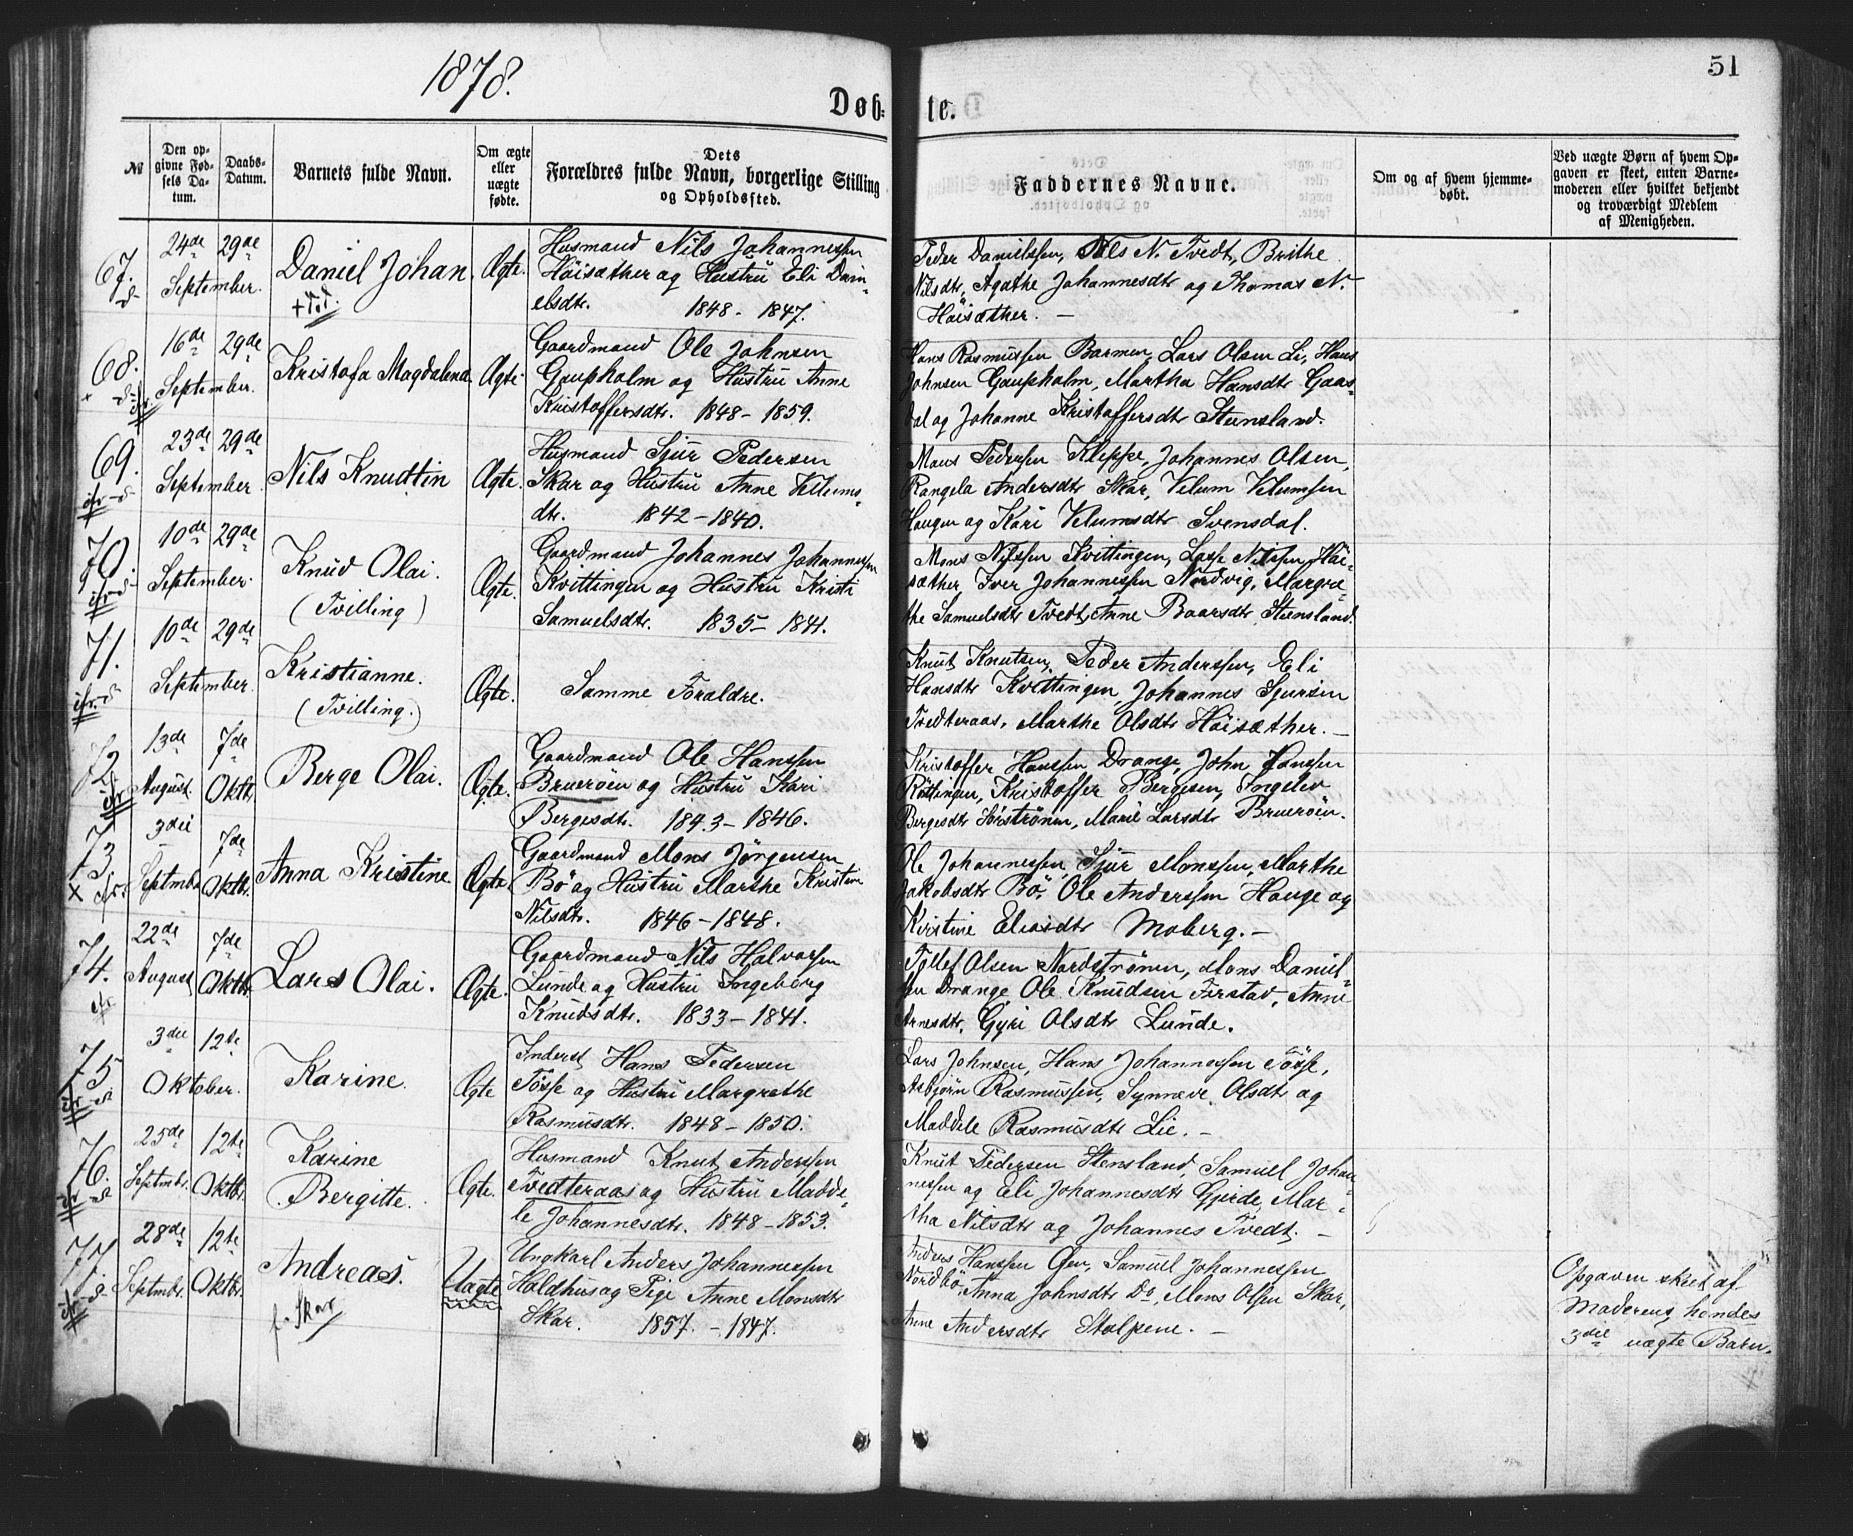 1878.
51
Døb= te.
№
Den op-
givne Fød-
sels Da-
tum.
Daabs-
Datum.
Barnets fulde Navn.
Om ægte
eller
uægte
fødte.
Dets
Forældres fulde Navn, borgerlige Stilling
og Opholdssted.
Faddernes Navne.
Om og af hvem hjemme-
døbt.
Ved uægte Børn af hvem Op-
gaven er skeet, enten Barne-
moderen eller hvilket bekjendt
og troværdigt Medlem
af Menigheden.
67.
24de
September.
29de
Daniel Johan
Ægte.
Husmand Nils Johannessen
Höisæther og Hustru Eli Dani-
elsdt. 1848 - 1847.
Peder Danielssen, Nils N. Tvedt, Brithe
Nilsdt, Agathe Johannesdtr og Thomas N.
Höisæther. —
68.
16de
September.
29de
Kristofa Magdalena
Ægte.
Gaardmand Ole Johnsen
Gaupholm og Hustru Anne
Kristoffersdtr. 1848 - 1859.
Hans Rasmussen Barmen, Lars Olsen Li, Hans
Johnsen Gaupholm, Martha Hansdtr Gaas-
dal og Johanne Kristoffersdt Stensland.
69.
23de
September
29de
Nils Knudtin
Ægte.
Husmand Sjur Pedersen
Skar og Hustru Anne Velums-
dtr. 1842 - 1840.
Mons Pedersen Kleppe, Johannes Olsen,
Rangela Andersdtr Skar, Velum Velumsen
Haugen og Kari Velumsdtr Svensdal.
70.
10de
September.
29de
Knud Olai.
(Tvilling)
Ægte.
Gaardmand Johannes Johannessen
Kvittingen og Hustru Kristi
Samuelsdtr. 1835 - 1841.
Mons Nilssen Kvittingen, Lasse Nilssen Höi-
sæther, Iver Johannessen Nordvig, Margre-
the Samuelsdtr Tvedt, Anne Baarsdtr Stensland.
71.
10de
September
29de
Kristianne.
(Tvilling.)
Ægte.
Samme Forældre.
Knut Knutsen, Peder Anderssen, Eli
Hansdtr Kvittingen, Johannes Sjursen
Tvedteraas, Marthe Olsdtr Höisæther. —
72.
13de
August.
7de
Oktb.
Berge Olai.
Ægte.
Gaardmand Ole Hanssen
Bruerøen og Hustru Kari
Bergesdtr. 1843 - 1846.
Kristoffer Hanssen Drange, John Hanssen
Röttingen, Kristoffer Bergesen, Ingelev
Bergesdtr Sörströnen, Marie Larsdtr Bruerøen.
73.
3die
Septmbr
7de
Oktbr.
Anna Kristine
Ægte
Gaardmand Mons Jörgensen
Bø og Hustru Marthe Kristin
Nilsdtr. 1846 - 1848.
Ole Johannessen, Sjur Monssen, Marthe
Jakobsdtr Bö, Ole Anderssen Hauge og
Kirstine Eliasdtr Moberg. —
74.
22de
August
7de
Oktbr.
Lars Olai.
Ægte.
Gaardmand Nils Halvorsen
Lunde og Hustru Ingeborg
Knudsdtr. 1833 - 1841.
Tollef Olsen Nordströnen, Mons Daniel-
sen Drange, Ole Knudsen Ferstad, Anne
Arnesdtr, Gyri Olsdtr Lunde.
75.
3die
Oktober.
12te
Karine.
Ægte
Inderst Hans Pedersen
Tösse og Hustru Margrethe
Rasmusdtr. 1848 - 1850.
Lars Johnsen, Hans Johannessen Tösse,
Asbjörn Rasmussen, Synneve Olsdt og
Maddele Rasmusdtr Lie. —
76.
25de
Septmbr.
12te
Oktbr.
Karine
Bergitte.
Ægte.
Husmand Knut Anderssen
Tvedteraas og Hustru Madde-
le Johannesdtr. 1848 - 1853.
Knut Pedersen Stensland, Samuel Johan-
nessen og Eli Johannesdtr Gjerde, Mar-
tha Nilsdtr og Johannes Tvedt. —
77.
28de
Septmbr.
12te
Oktbr.
Andreas.
f. Skar
Uægte
Ungkarl Anders Johannessen
Haldhus og Pige Anne Monsdtr
Skar. 1857. - 1847.
Anders Hanssen Øen, Samuel Johannessen
Nordbö, Anna Johnsdtr Do, Mons Olsen Skar,
Anne Andersdtr Stolpene. —
Opgaven skeet af
Moderen; hendes
3die uægte Barn.